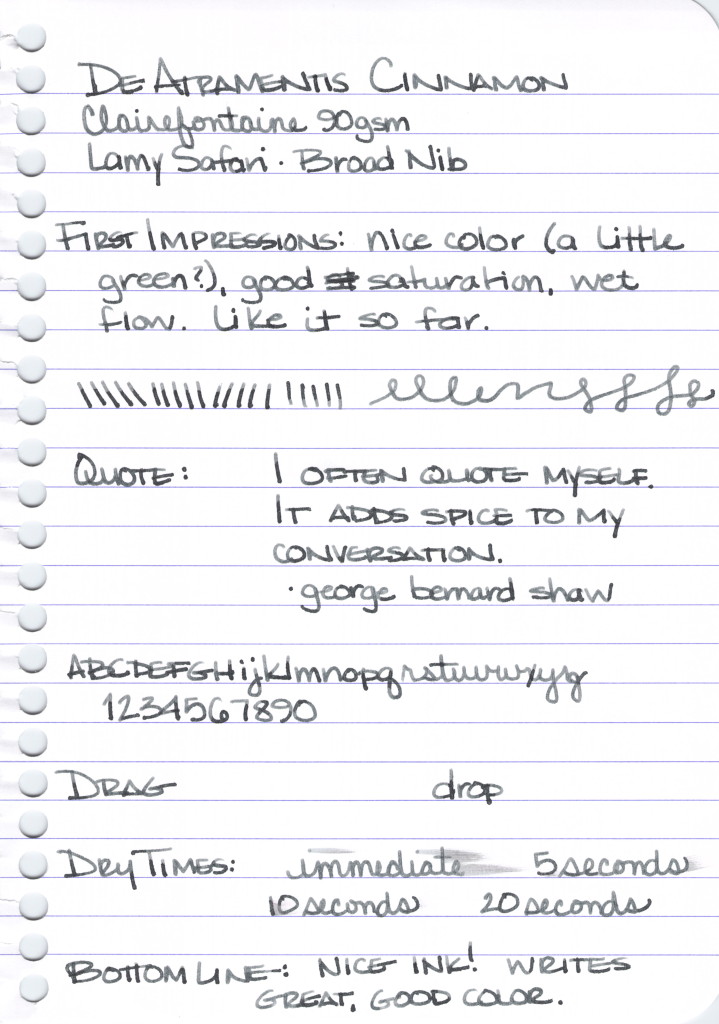 De Atramentis Cinnamon
Clairefontaine 90gsm
Lamy Safari · Broad Nib
First Impressions: nice color (a little
green?), good saturation, wet
flow. Like it so far.
Quote: I often quote myself.
It adds spice to my
conversation.
· george bernard shaw
ABCDEFGHijklmnopqrstuvwxyz
1234567890
Drag drop
Dry Times: immediate 5 seconds
10 seconds 20 seconds
Bottom Line-: Nice ink! Writes
great, good color.